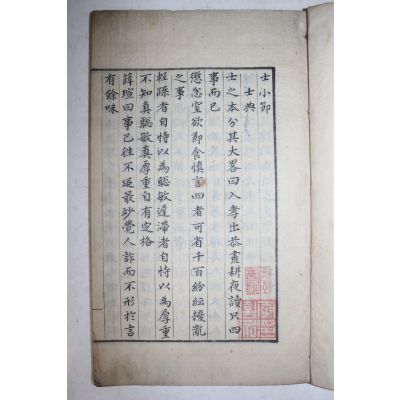 士小節
士典
士之本分其大畧曰入孝出恭晝耕夜讀只四
事而已
懲忿窒欲節食愼言四者可省千百紛紜擾亂
之事
輕躁者自恃以為聡敏遲滯者自恃以為厚重
不知真聡敏真厚重自有定格
薛瑄曰事已往不追最妙覺人詐而不形於言
有餘味